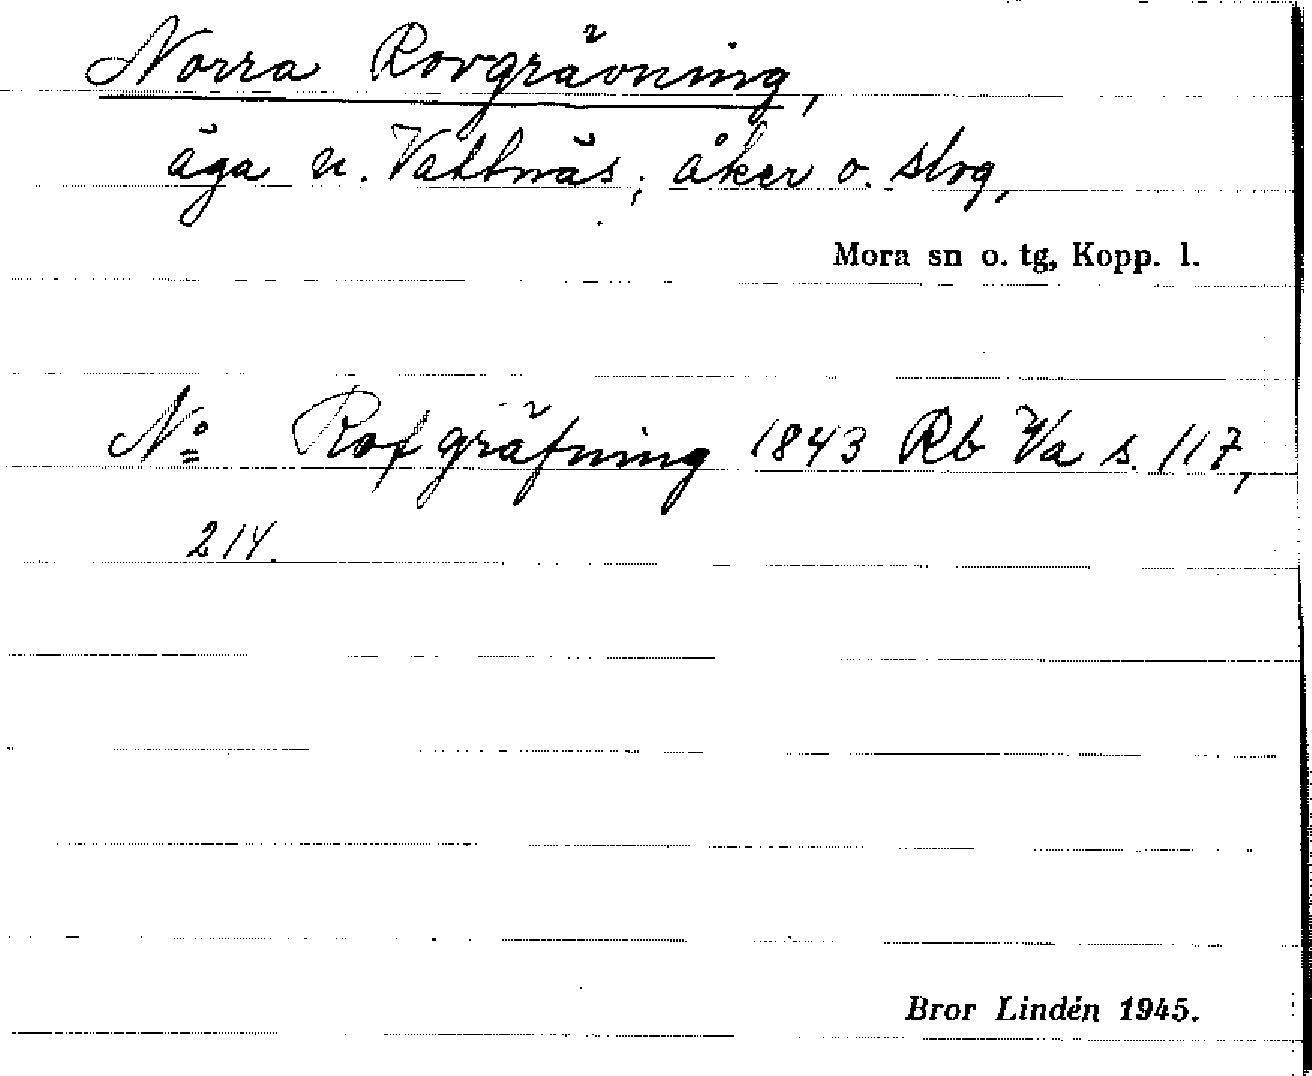 Norra Rovgrävning,
äga u. Vattnäs; åker o. slog,
Mora sn o. tg, Kopp. l.
No Rofgräfning 1843 Rb Va s. 117,
214.
Bror Lindén 1945.